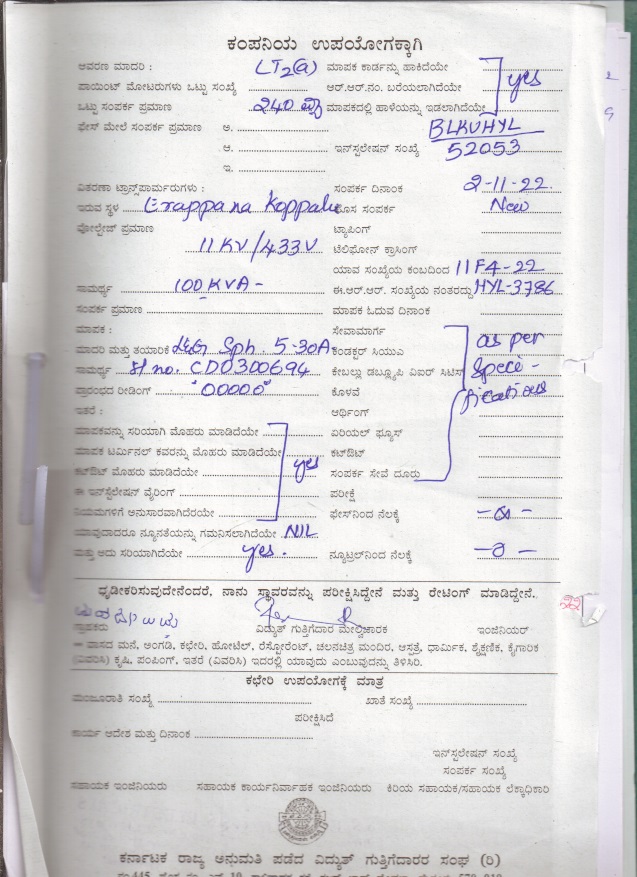 ಕಂಪನಿಯ ಉಪಯೋಗಕ್ಕಾಗಿ
ಆವರಣ ಮಾದರಿ : LT2(a) ಮಾಪಕ ಕಾರ್ಡನ್ನು ಹಾಕಿದೆಯೇ
ಪಾಯಿಂಟ್ ಮೋಟರುಗಳು ಒಟ್ಟು ಸಂಖ್ಯೆ ಆರ್.ಆರ್.ನಂ. ಬರೆಯಲಾಗಿದೆಯೇ yes
ಒಟ್ಟು ಸಂಪರ್ಕ ಪ್ರಮಾಣ 240 ಮಾಪಕದಲ್ಲಿ ಹಾಳೆಯನ್ನು ಇಡಲಾಗಿದೆಯೇ
ಫೇಸ್ ಮೇಲೆ ಸಂಪರ್ಕ ಪ್ರಮಾಣ ಅ. BLKVHYL
ಆ. ಇನ್‌ಸ್ಟಲೇಷನ್ ಸಂಖ್ಯೆ 52053
ಇ.
ವಿತರಣಾ ಟ್ರಾನ್ಸ್‌ಫಾರ್ಮರುಗಳು : ಸಂಪರ್ಕ ದಿನಾಂಕ 2-11-22.
ಇರುವ ಸ್ಥಳ Erappana Koppalu ಹೊಸ ಸಂಪರ್ಕ New
ವೋಲ್ಟೇಜ್ ಪ್ರಮಾಣ ಟ್ಯಾಪಿಂಗ್
11 KV/433V ಟೆಲಿಫೋನ್ ಕ್ರಾಸಿಂಗ್
ಯಾವ ಸಂಖ್ಯೆಯ ಕಂಬದಿಂದ 11F4-22
ಸಾಮರ್ಥ್ಯ 100 KVA - ಈ.ಆರ್.ಆರ್. ಸಂಖ್ಯೆಯ ನಂತರದ್ದು HYL-3786
ಸಂಪರ್ಕ ಪ್ರಮಾಣ ಮಾಪಕ ಓದುವ ದಿನಾಂಕ
ಮಾಪಕ : ಸೇವಾಮಾರ್ಗ
ಮಾದರಿ ಮತ್ತು ತಯಾರಿಕೆ L&G Sph. 5-30A ಕಂಡಕ್ಟರ್ ಸಿಯುಎ as per
ಸಾಮರ್ಥ್ಯ Sl no. CD0300694 ಕೇಬಲ್ಲು ಡಬ್ಲ್ಯೂಪಿ ವಿಐರ್ ಸಿಟಿಸ್ speci -
ಪ್ರಾರಂಭದ ರೀಡಿಂಗ್ "00000" ಕೊಳವೆ fications
ಇತರೆ : ಆರ್ಥಿಂಗ್
ಮಾಪಕವನ್ನು ಸರಿಯಾಗಿ ಮೊಹರು ಮಾಡಿದೆಯೇ ಏರಿಯಲ್ ಫ್ಯೂಸ್
ಮಾಪಕ ಟರ್ಮಿನಲ್ ಕವರನ್ನು ಮೊಹರು ಮಾಡಿದೆಯೇ ಕಟ್‌ಔಟ್
ಕಟ್‌ಔಟ್ ಮೊಹರು ಮಾಡಿದೆಯೇ yes ಸಂಪರ್ಕ ಸೇವೆ ದೂರು
ಈ ಇನ್‌ಸ್ಟಲೇಷನ್ ವೈರಿಂಗ್ ಪರೀಕ್ಷೆ
ನಿಯಮಗಳಿಗೆ ಅನುಸಾರವಾಗಿದೆಯೇ ಫೇಸ್‌ನಿಂದ ನೆಲಕ್ಕೆ
ಯಾವುದಾದರೂ ನ್ಯೂನತೆಯನ್ನು ಗಮನಿಸಲಾಗಿದೆಯೇ NIL
ಮತ್ತು ಅದು ಸರಿಯಾಗಿದೆಯೇ yes. ನ್ಯೂಟ್ರಲ್‌ನಿಂದ ನೆಲಕ್ಕೆ
ಧೃಡೀಕರಿಸುವುದೇನೆಂದರೆ, ನಾನು ಸ್ಥಾವರವನ್ನು ಪರೀಕ್ಷಿಸಿದ್ದೇನೆ ಮತ್ತು ರೇಟಿಂಗ್ ಮಾಡಿದ್ದೇನೆ.
ಗ್ರಾಹಕರು ವಿದ್ಯುತ್ ಗುತ್ತಿಗೆದಾರ ಮೇಲ್ವಿಚಾರಕ ಇಂಜಿನಿಯರ್
– ವಾಸದ ಮನೆ, ಅಂಗಡಿ, ಕಛೇರಿ, ಹೋಟೆಲ್, ರೆಸ್ಟೋರೆಂಟ್, ಚಲನಚಿತ್ರ ಮಂದಿರ, ಆಸ್ಪತ್ರೆ, ಧಾರ್ಮಿಕ, ಶೈಕ್ಷಣಿಕ, ಕೈಗಾರಿಕೆ
(ವಿವರಿಸಿ) ಕೃಷಿ, ಪಂಪಿಂಗ್, ಇತರೆ (ವಿವರಿಸಿ) ಇದರಲ್ಲಿ ಯಾವುದು ಎಂಬುವುದನ್ನು ತಿಳಿಸಿರಿ.
ಕಛೇರಿ ಉಪಯೋಗಕ್ಕೆ ಮಾತ್ರ
ಮಂಜೂರಾತಿ ಸಂಖ್ಯೆ ಖಾತೆ ಸಂಖ್ಯೆ
ಪರೀಕ್ಷಿಸಿದೆ
ಕಾರ್ಯ ಆದೇಶ ಮತ್ತು ದಿನಾಂಕ
ಇನ್‌ಸ್ಟಲೇಷನ್ ಸಂಖ್ಯೆ
ಸಂಪರ್ಕ ಸಂಖ್ಯೆ
ಸಹಾಯಕ ಇಂಜಿನಿಯರು ಸಹಾಯಕ ಕಾರ್ಯನಿರ್ವಾಹಕ ಇಂಜಿನಿಯರು ಕಿರಿಯ ಸಹಾಯಕ/ಸಹಾಯಕ ಲೆಕ್ಕಾಧಿಕಾರಿ
ಕರ್ನಾಟಕ ರಾಜ್ಯ ಅನುಮತಿ ಪಡೆದ ವಿದ್ಯುತ್ ಗುತ್ತಿಗೆದಾರರ ಸಂಘ (ರಿ)